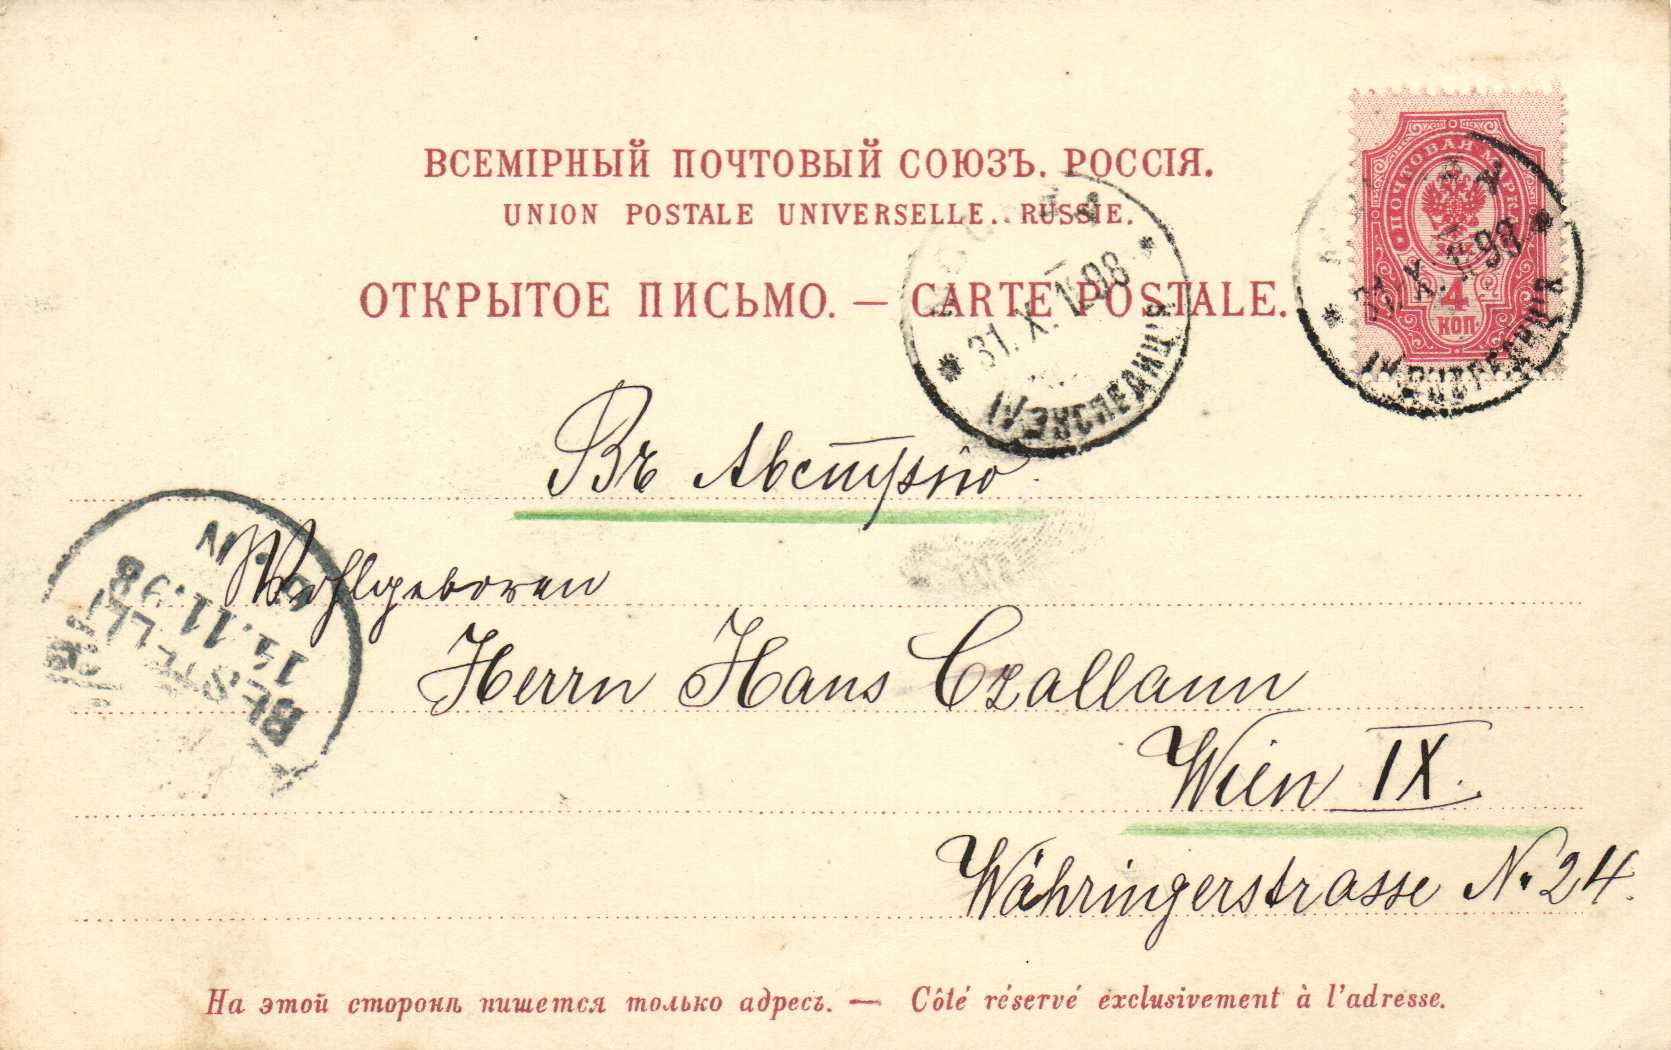 ВСЕМІРНЫЙ ПОЧТОВЫЙ СОЮЗЪ. РОССІЯ.
UNION POSTALE UNIVERSELLE. RUSSIE.
ОТКРЫТОЕ ПИСЬМО. — CARTE POSTALE.
ПОЧТОВАЯ МАРКА
4
КОП
31. X. 1898
ЭКСПЕДИЦІЯ
31. X. 1898
ЭКСПЕДИЦІЯ
Въ Австрію
Wohlgeboren
Herrn Hans Czallann
Wien IX.
Währingerstrasse N. 24.
BESTELLT
11.11.98
На этой сторонѣ пишется только адресъ. — Côté réservé exclusivement à l'adresse.